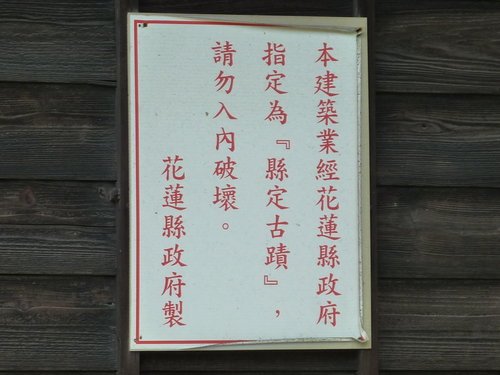 本建築業經花蓮縣政府
指定為『縣定古蹟』，
請勿入內破壞。
花蓮縣政府製